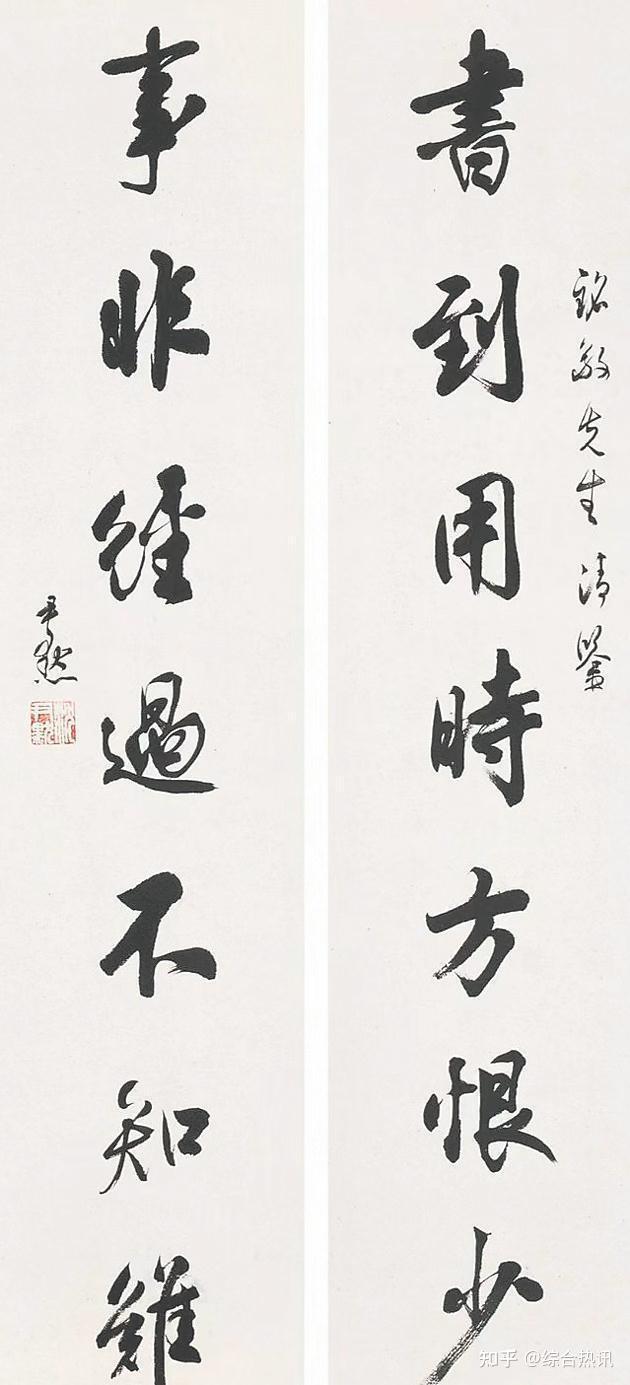 銘敏先生清鑒
書到用時方恨少
事非經過不知難
尹默
知乎 @综合热讯